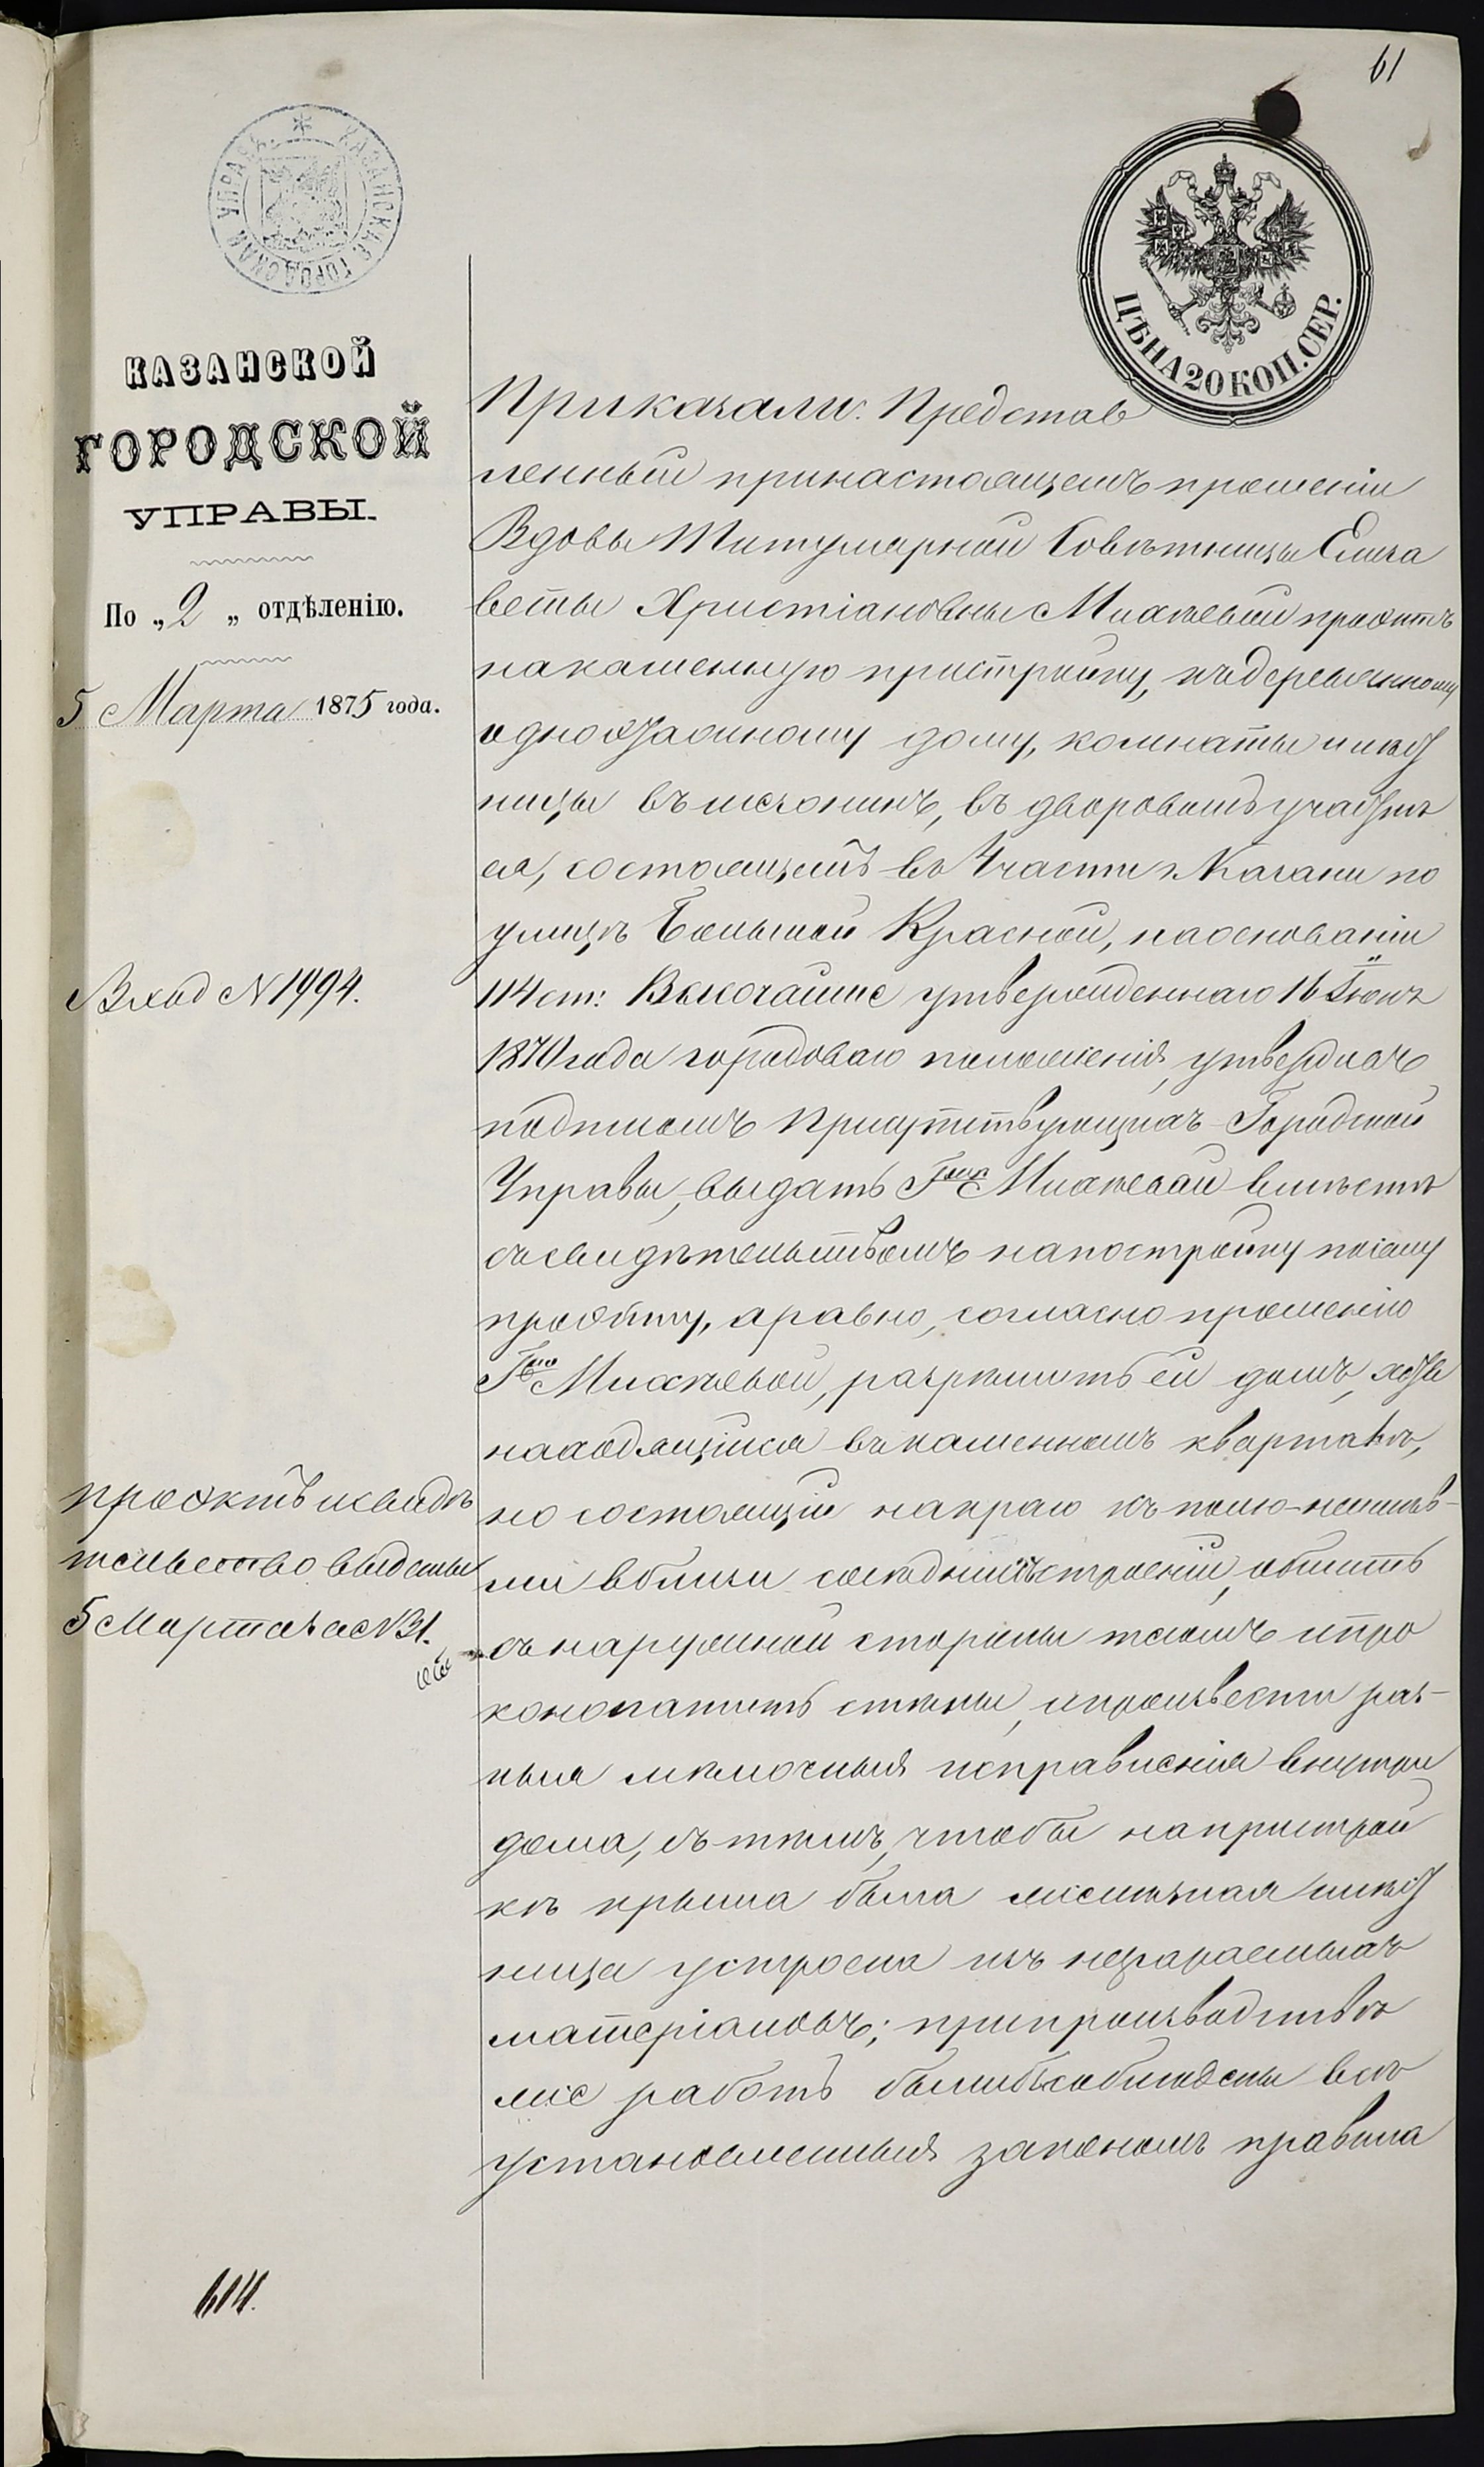 61
КАЗАНСКАЯ ГОРОДСКАЯ УПРАВА
ЦѢНА 20 КОП. СЕР.
КАЗАНСКОЙ
ГОРОДСКОЙ
УПРАВЫ.
По „2„ отдѣленію.
5 Марта 1875 года.
Вход № 1994.
проэктъ и свидѣ
тельство выданы
5 Марта за № 31.
614.
Приказали: Представ
ленный принастоящемъ прошеніи
Вдовы Титулярной Совѣтницы Елиза
веты Христіановны проэктъ
накаменную пристройку, къ деревянному
одноэтажному дому, комнаты илѣст
ницы въ мезонинъ, въ дворовомъ участкѣ
ея, состоящемъ въ 4 части г. Казани по
улицѣ Большой Красной, наоснованіи
114 ст: Высочайше утвержденнаго 16 Іюня
1870 года городоваго положенія, утвердивъ
подписомъ Присутствующихъ Городской
Управы, выдать Гжѣ вмѣстѣ
съ свидѣтельствомъ напостройку посему
проэкту, а равно, согласно прошенію
Гжи разрѣшить ей домъ, хотя
находящійся въ каменномъ кварталѣ,
но состоящій накраю къ полю неимѣ-
ли вблизи сосѣднихъ строеній, обшить
съ наружной стороны тесомъ ипро
конопатить стѣны, ипроизвести раз-
ныя мѣлочныя исправленія внутри
дома, съ тѣмъ, чтобы напристрой
кѣ крыша была желѣзная илѣст
ница устроена изъ несгараемыхъ
матеріаловъ; припроизводствѣ
же работъ былибъ соблюдены всѣ
установленныя закономъ правила